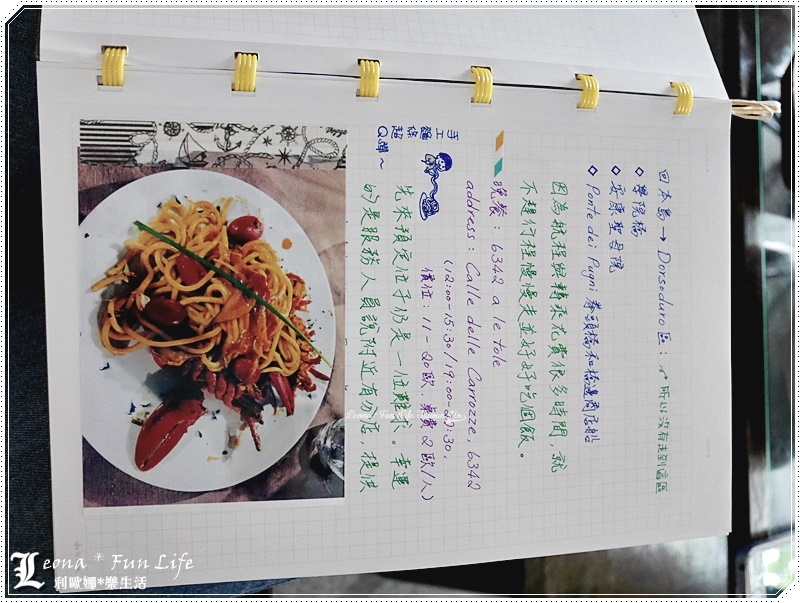 回本島 → Dorsoduro 區: 所以沒有走到這區
◇ 學院橋
◇ 安康聖母院
◇ Ponte dei Pugni 拳頭橋和橋邊商店船
因為航程但轉乘花費很多時間，就
不趕行程慢慢走並好好吃個飯。
晚餐: 6342 a le tole
address: Calle delle Carrozze, 6342
(12:00-15:30/19:00-23:30,
價位: 11-20歐. 桌費2歐/人)
先來預定位子仍是一位難求。幸運
的是服務人員說附近有分店，提供
手工麵條超
Q彈~
Leona * Fun Life
利歐娜*樂生活